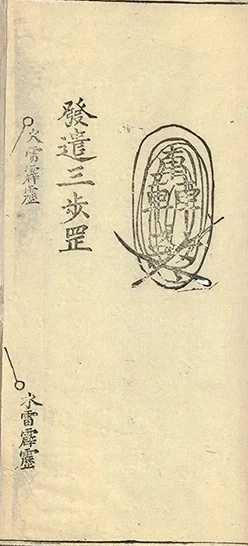 發遣三步罡
火雷霹靂
水雷霹靂